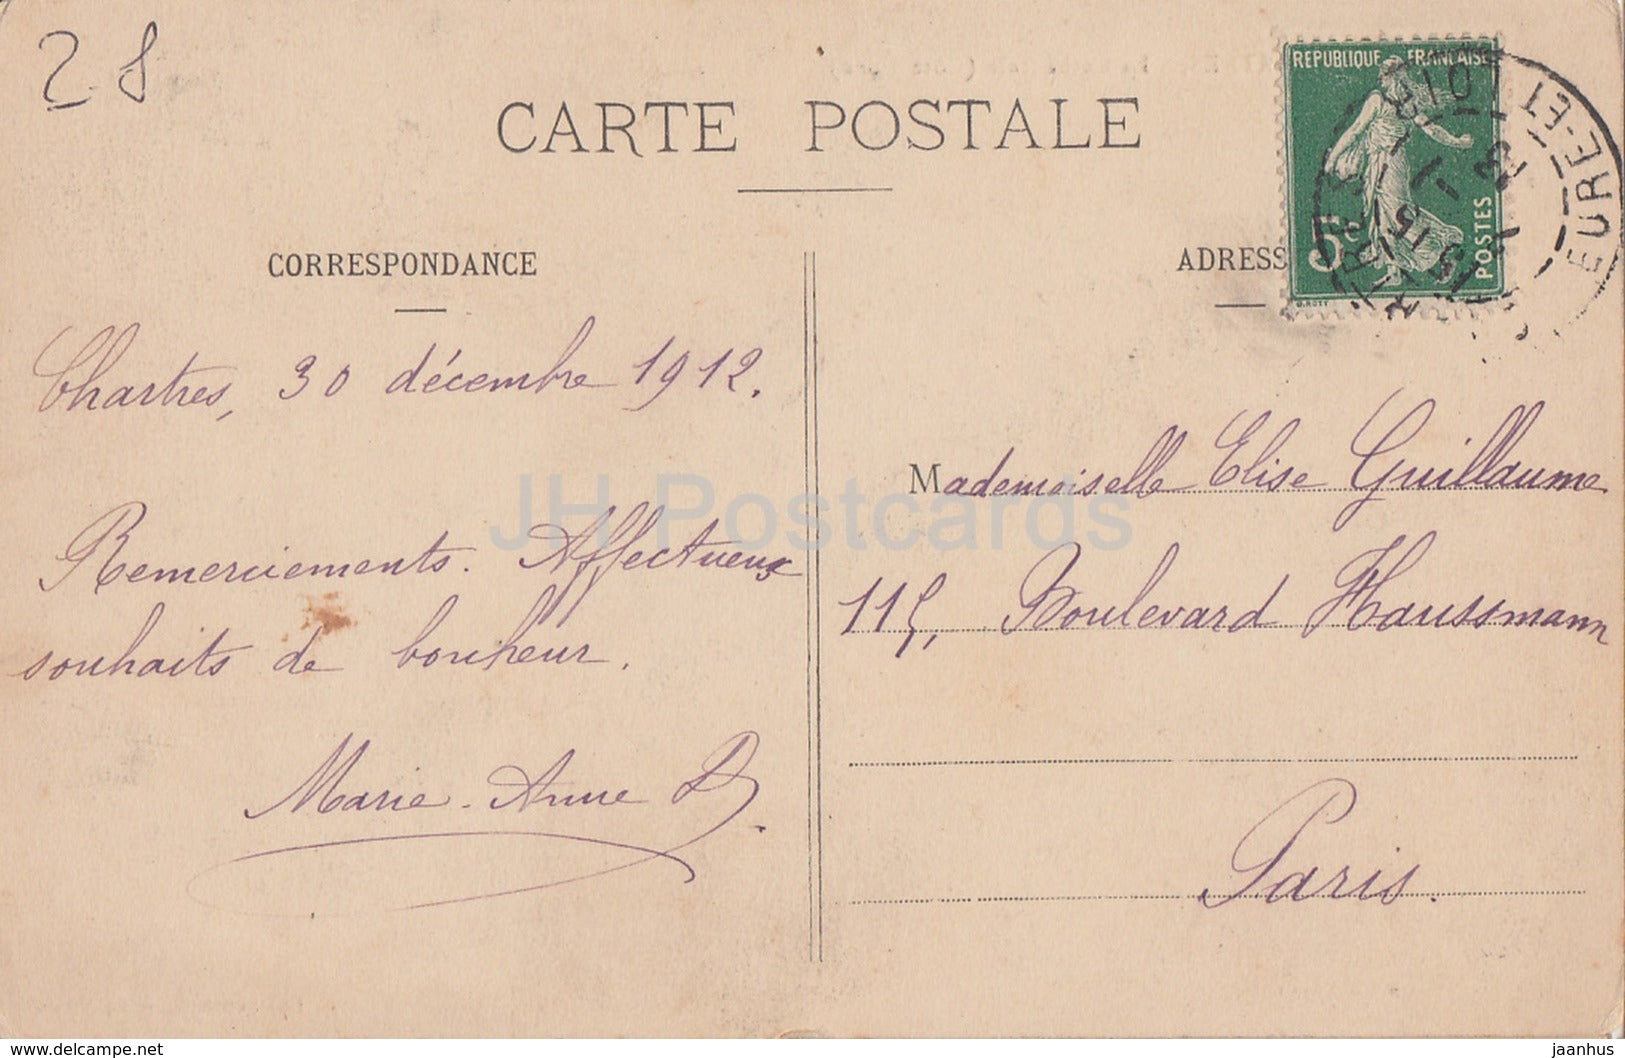 28
CARTE POSTALE
CORRESPONDANCE
ADRESS
REPUBLIQUE FRANÇAISE
5c
POSTES
O.ROTY
EURE-ET
Chartres, 30 décembre 1912.
Remerciements. Affectueux
souhaits de bonheur.
Marie-Anne D.
Mademoiselle Elise Guillaume
115, Boulevard Haussmann
Paris.
JH Postcards
www.delcampe.net
jaanhus